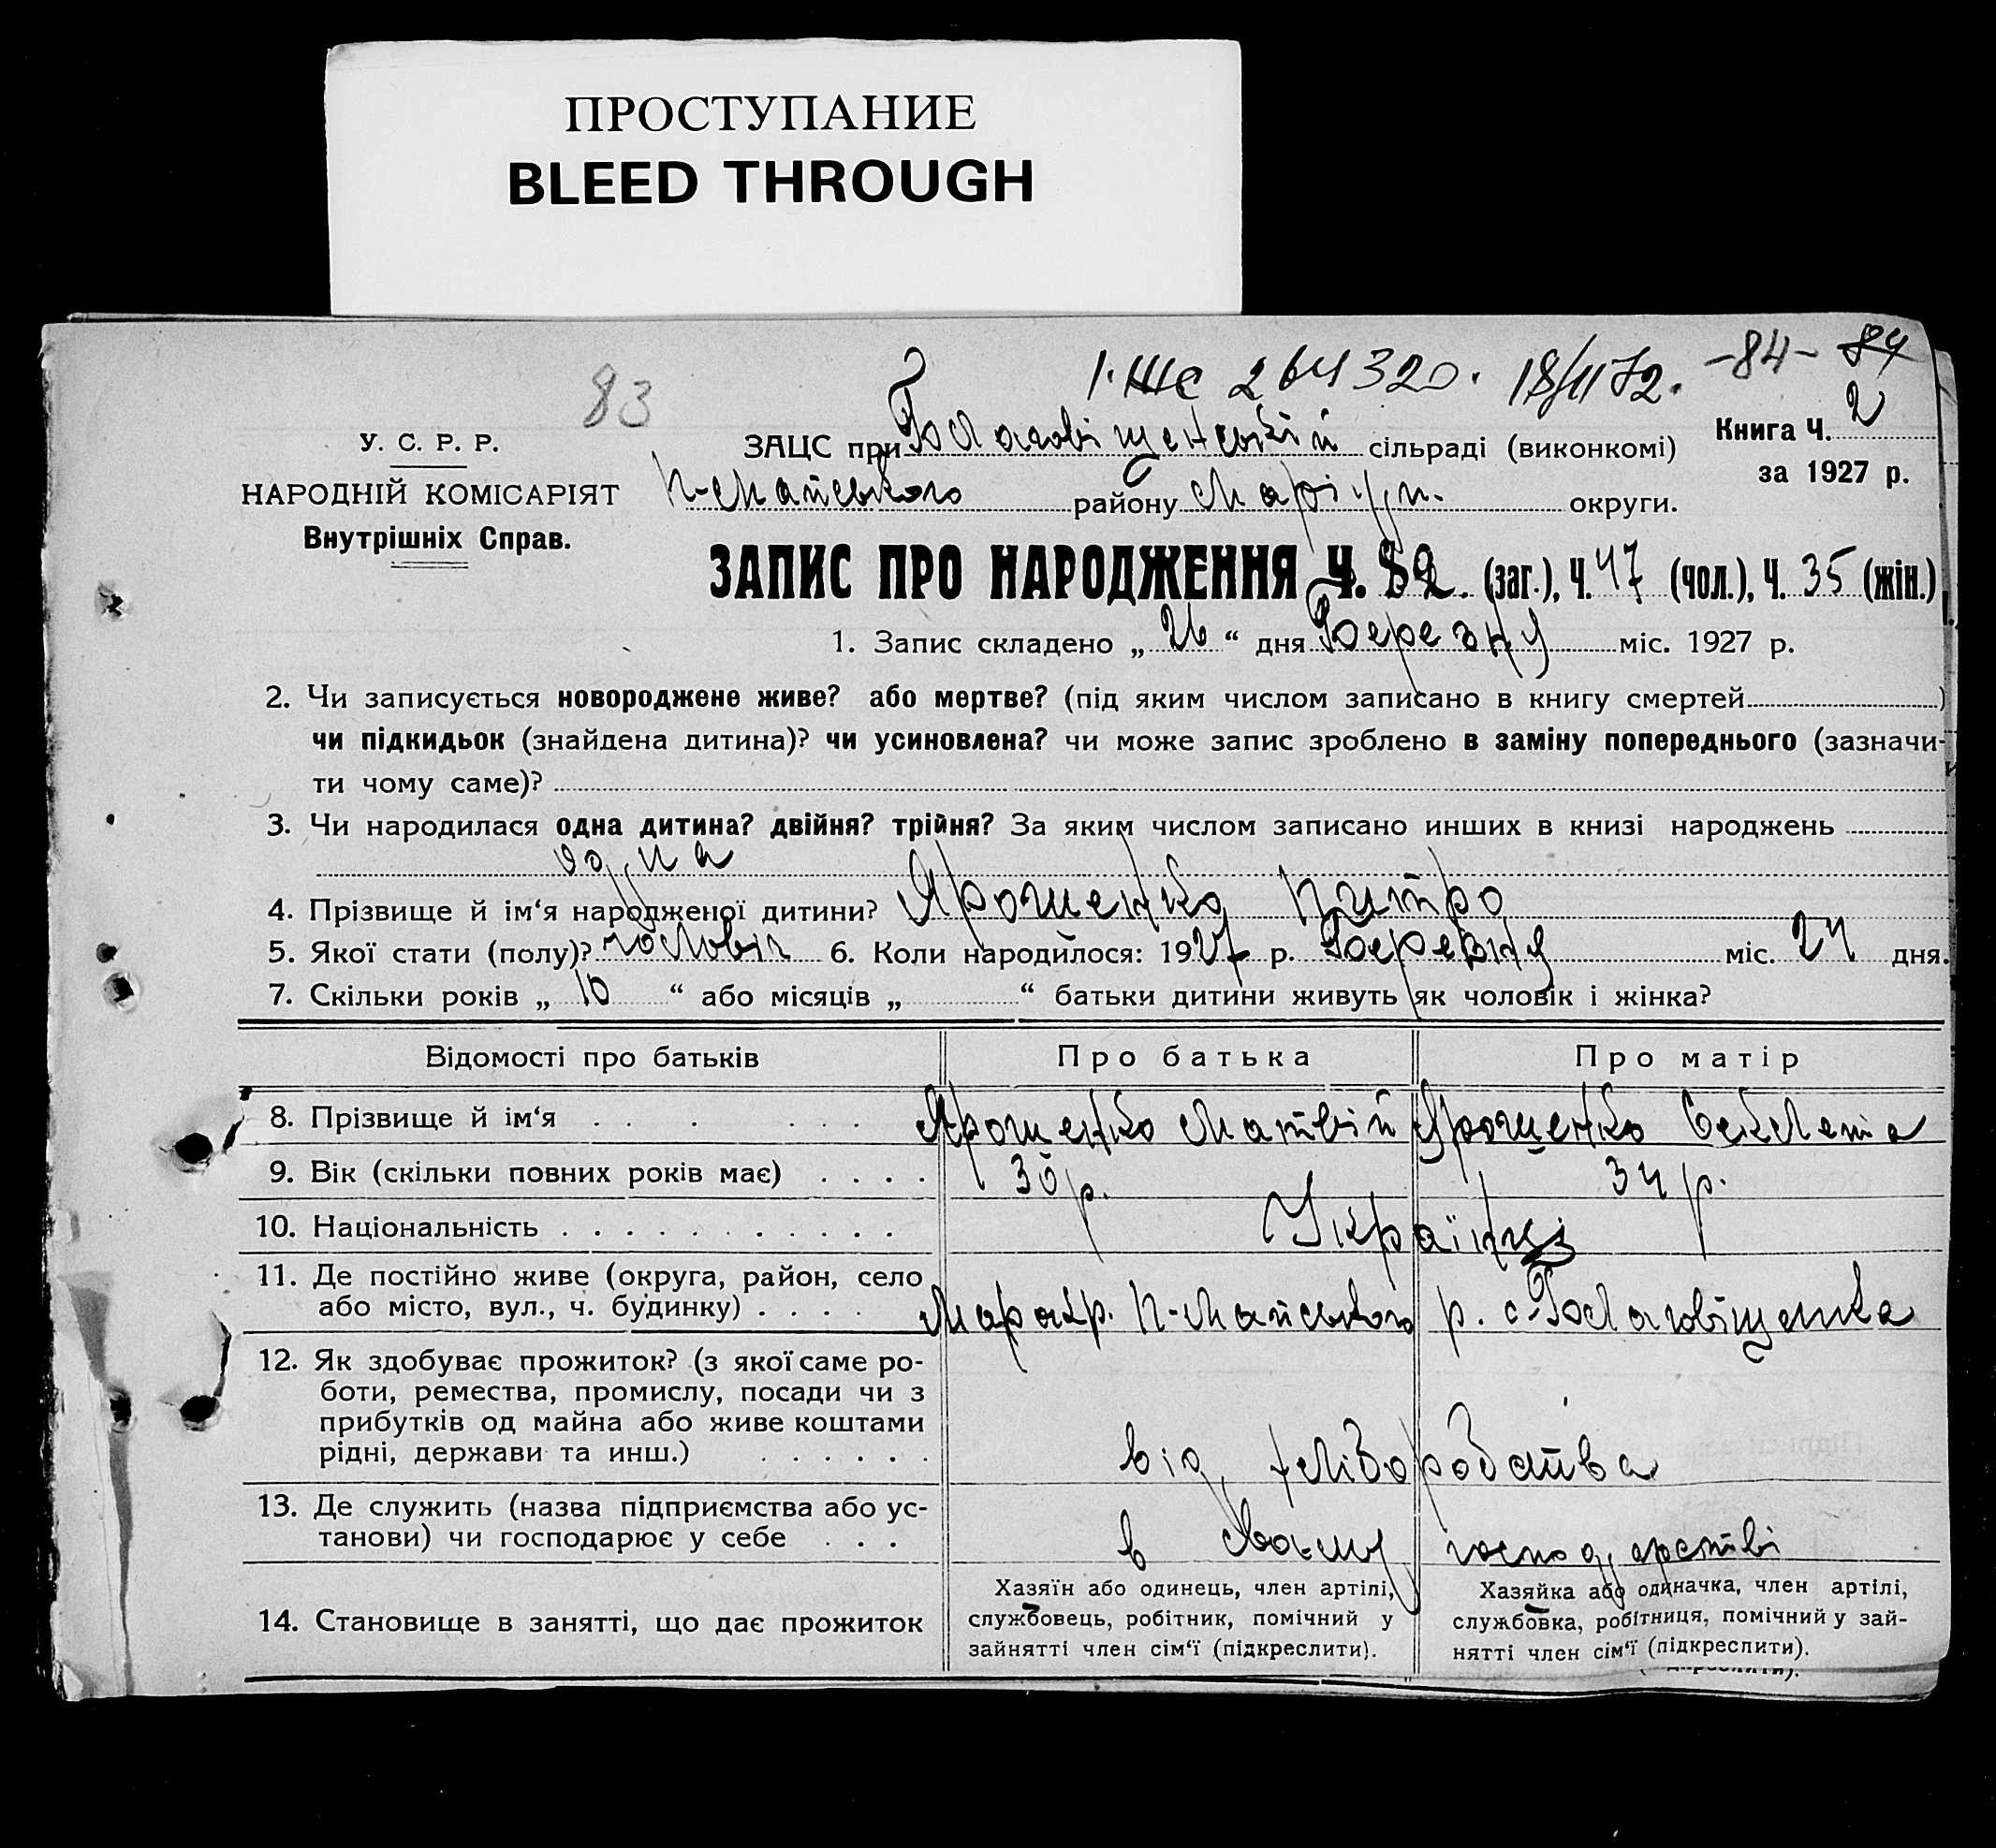 ПРОСТУПАНИЕ
BLEED THROUGH
83
1. ЖС 264320. 18/II 72. -84- 84
У. С. Р. Р.
НАРОДНІЙ КОМІСАРІЯТ
Внутрішніх Справ.
ЗАЦС при Благовіщенській сільраді (виконкомі)
Книга Ч. 2
за 1927 р.
П-Маїевського району Маріуп. округи.
ЗАПИС ПРО НАРОДЖЕННЯ Ч. 82. (заг.), Ч. 47 (чол.), Ч. 35 (жін.)
1. Запис складено „ 26 “ дня Березня міс. 1927 р.
2. Чи записується новороджене живе? або мертве? (під яким числом записано в книгу смертей )
чи підкидьок (знайдена дитина)? чи усиновлена? чи може запис зроблено в заміну попереднього (зазначи-
ти чому саме)?
3. Чи народилася одна дитина? двійня? трійня? За яким числом записано инших в книзі народжень
одна
4. Прізвище й ім‘я народженої дитини? Ярошенко Питро
5. Якої стати (полу)? чоловіч 6. Коли народилося: 1927 р. Березня міс. 24 дня.
7. Скільки років „ 10 “ або місяців „ “ батьки дитини живуть як чоловік і жінка?
Відомості про батьків Про батька Про матір
8. Прізвище й ім‘я Ярошенко Матвій Ярошенко Секлета
9. Вік (скільки повних років має) 30 р. 34 р.
10. Національність Українці
11. Де постійно живе (округа, район, село
або місто, вул., ч. будинку) Мар окр. П-Маїевського р. с-Благовіщенка
12. Як здобуває прожиток? (з якої саме ро-
боти, ремества, промислу, посади чи з
прибутків од майна або живе коштами
рідні, держави та инш.) від хліборобства
13. Де служить (назва підприємства або ус-
танови) чи господарює у себе в своїму господарстві
14. Становище в занятті, що дає прожиток
Хазяїн або одинець, член артілі,
службовець, робітник, помічний у
зайнятті член сім‘ї (підкреслити).
Хазяйка або одиначка, член артілі,
службовка, робітниця, помічний у зай-
нятті член сім‘ї (підкреслити).